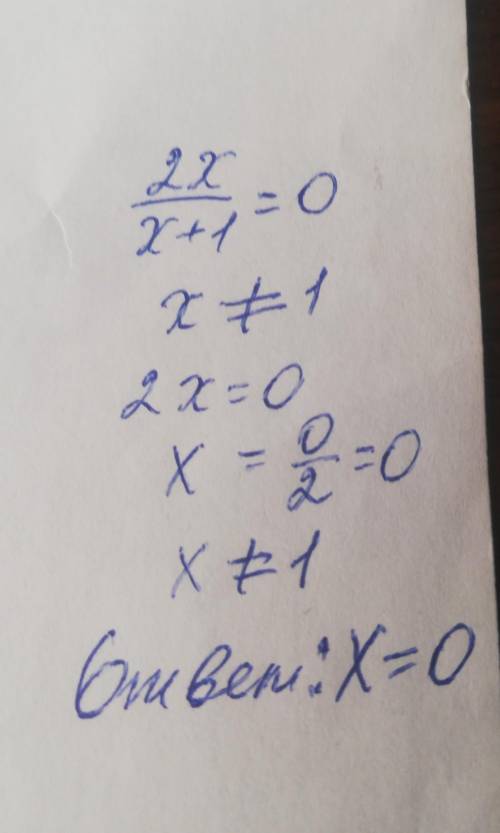 2x/x+1 = 0
x ≠ 1
2x = 0
x = 0/2 = 0
x ≠ 1
Ответ: x = 0